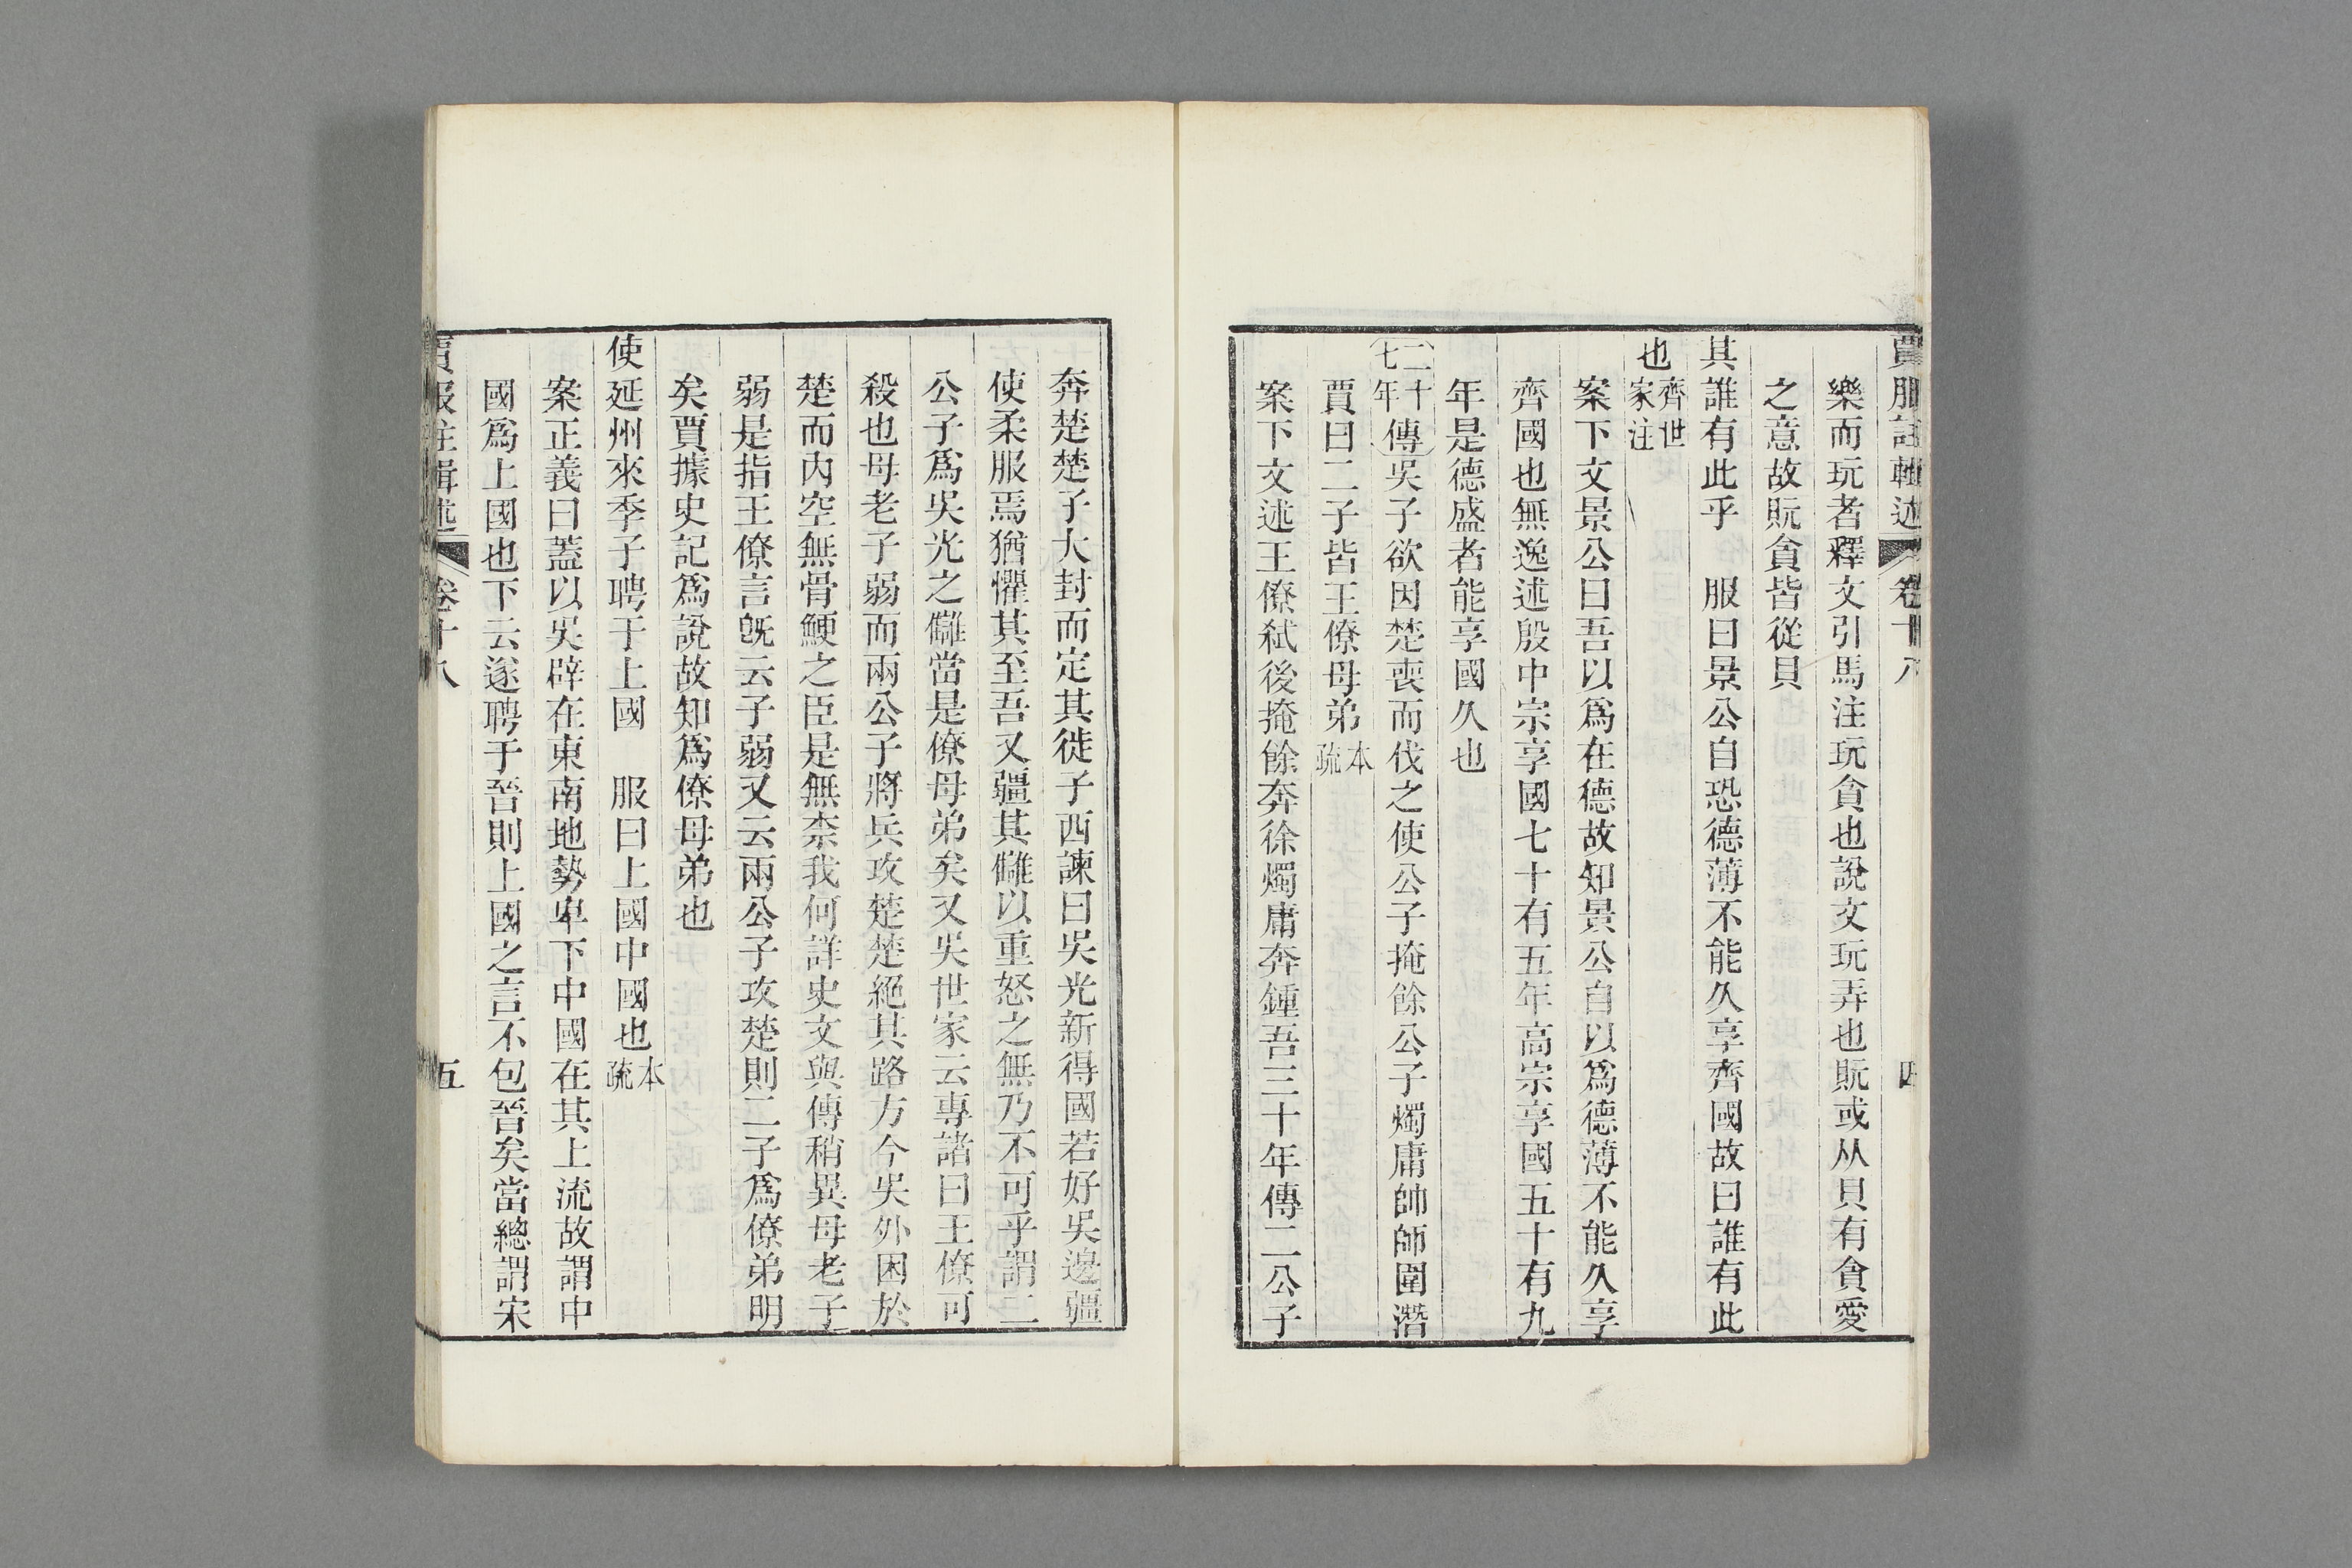 賈服註輯述 卷十八 四
樂而玩者釋文引馬注玩貪也說文玩弄也貦或从貝有貪愛
之意故貦貪皆從貝
其誰有此乎 服曰景公自恐德薄不能久享齊國故曰誰有此
也齊世家注
案下文景公曰吾以爲在德故知景公自以爲德薄不能久享
齊國也無逸述殷中宗享國七十有五年高宗享國五十有九
年是德盛者能享國久也
二十七年傳吳子欲因楚喪而伐之使公子掩餘公子燭庸帥師圍潛
賈曰二子皆王僚母弟本疏
案下文述王僚弒後掩餘奔徐燭庸奔鍾吾三十年傳二公子
奔楚楚子大封而定其徙子西諫曰吳光新得國若好吳邊疆
使柔服焉猶懼其至吾又疆其讎以重怒之無乃不可乎謂二
公子爲吳光之讎當是僚母弟矣又吳世家云專諸曰王僚可
殺也母老子弱而兩公子將兵攻楚楚絕其路方今吳外困於
楚而內空無骨鯁之臣是無柰我何詳史文與傳稍異母老子
弱是指王僚言旣云子弱又云兩公子攻楚則二子爲僚弟明
矣賈據史記爲說故知爲僚母弟也
使延州來季子聘于上國 服曰上國中國也本疏
案正義曰蓋以吳辟在東南地勢卑下中國在其上流故謂中
國爲上國也下云遂聘于晉則上國之言不包晉矣當總謂宋
賈服註輯述 卷十八 五